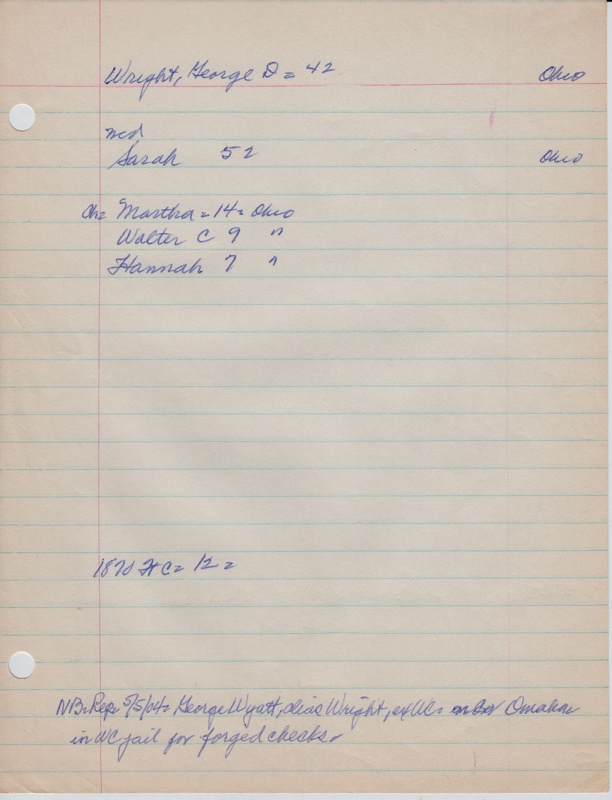 Wright, George D = 42 Ohio
med
Sarah 52 Ohio
Ch= Martha = 14 = Ohio
Walter C 9 "
Hannah 7 "
1870 FC= 12 =
NB= Rep= 5/5/04= George Wyatt, alias Wright, exWC= Omahan
in WC jail for forged checks